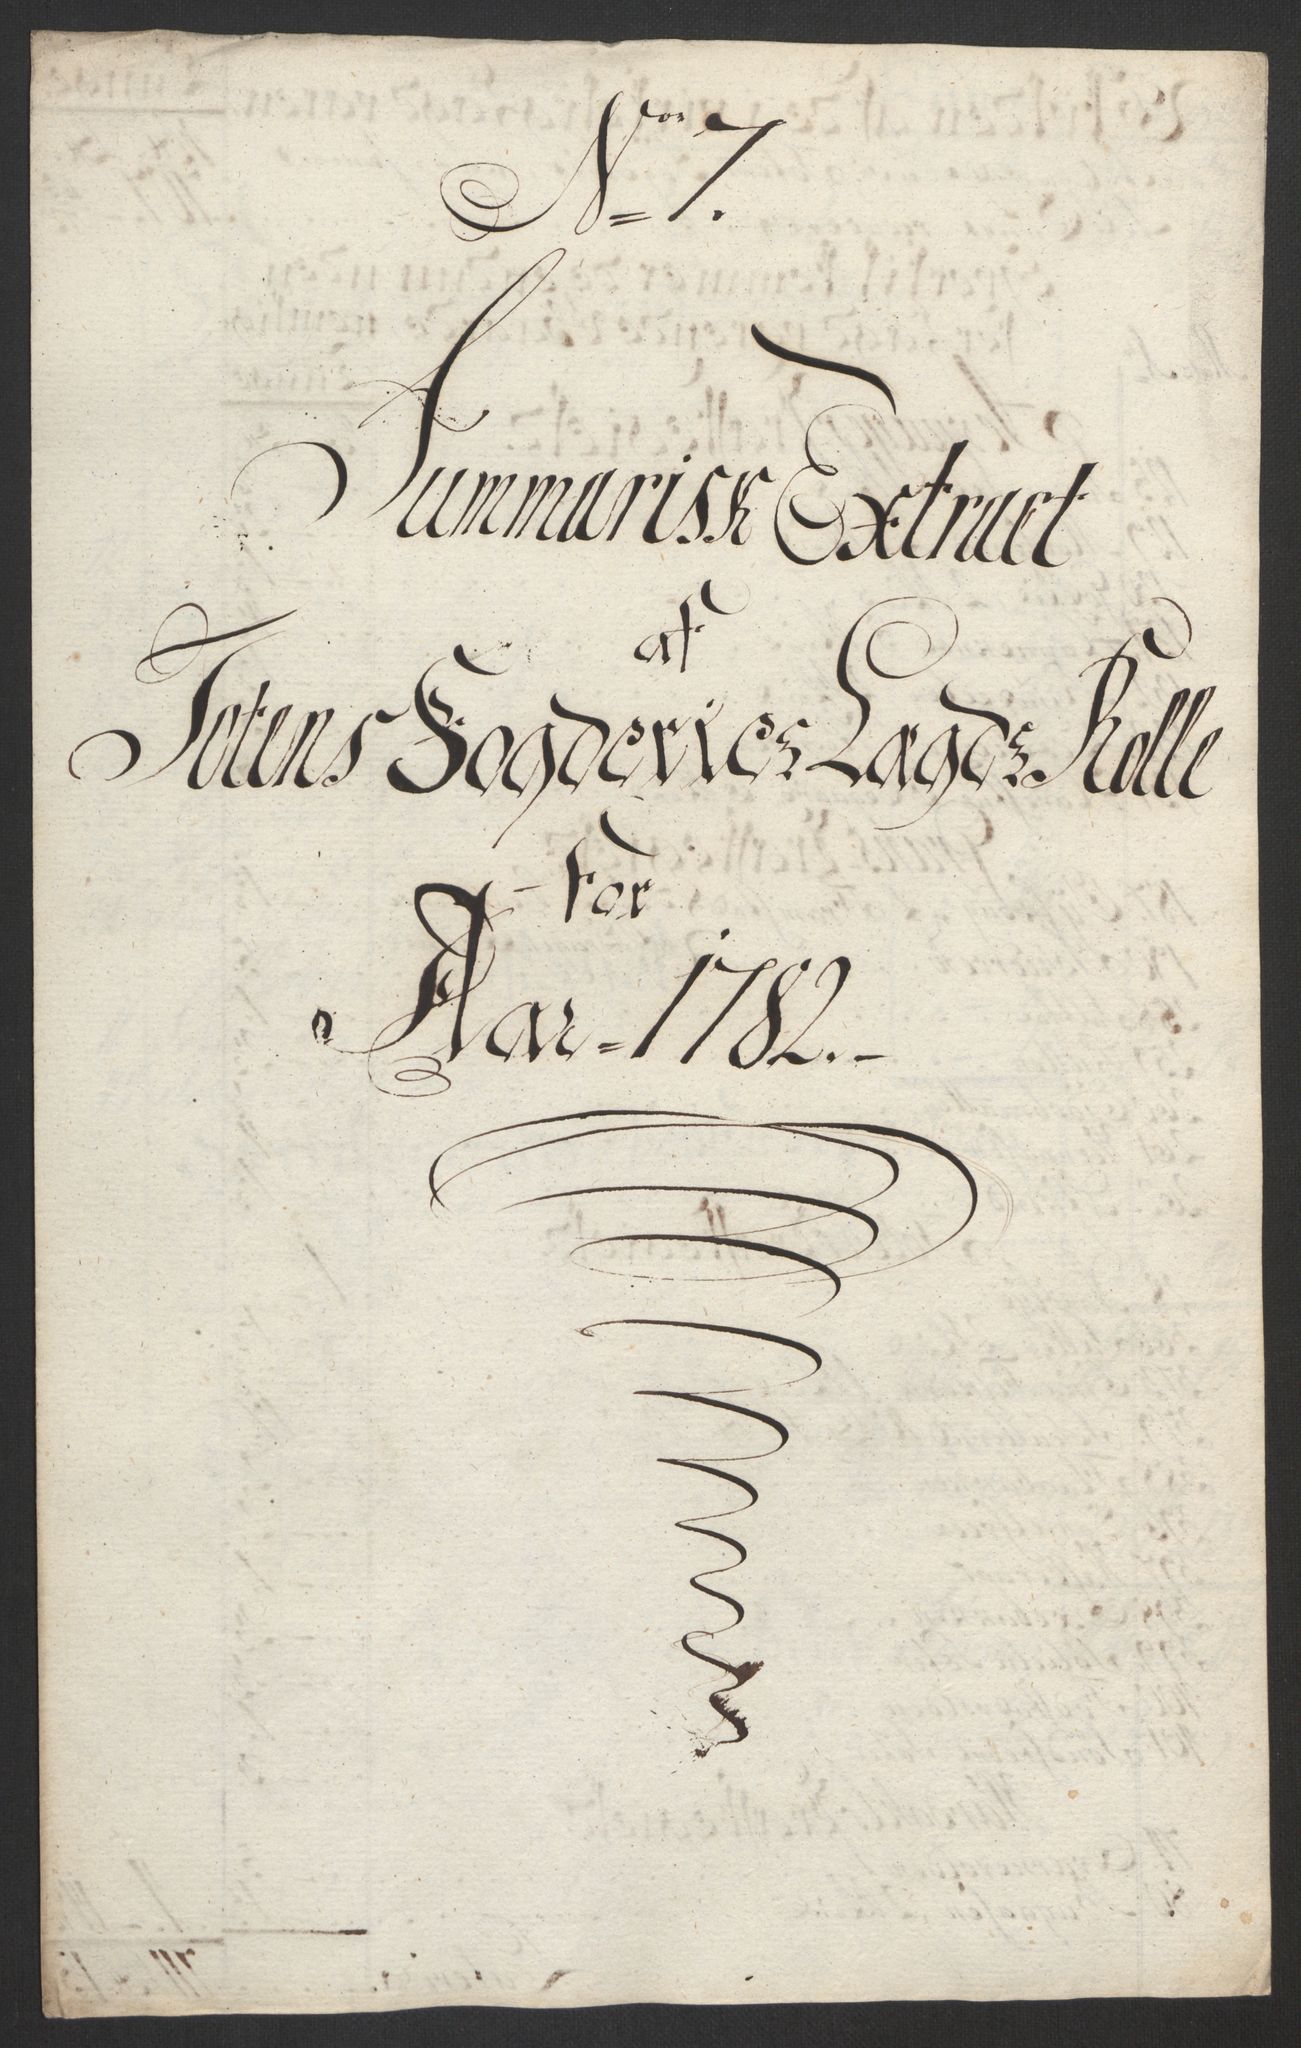 Nor 7.
Summarisk Extract
af
Totens Fogderies Lægds Rolle
for
Aar 1782.